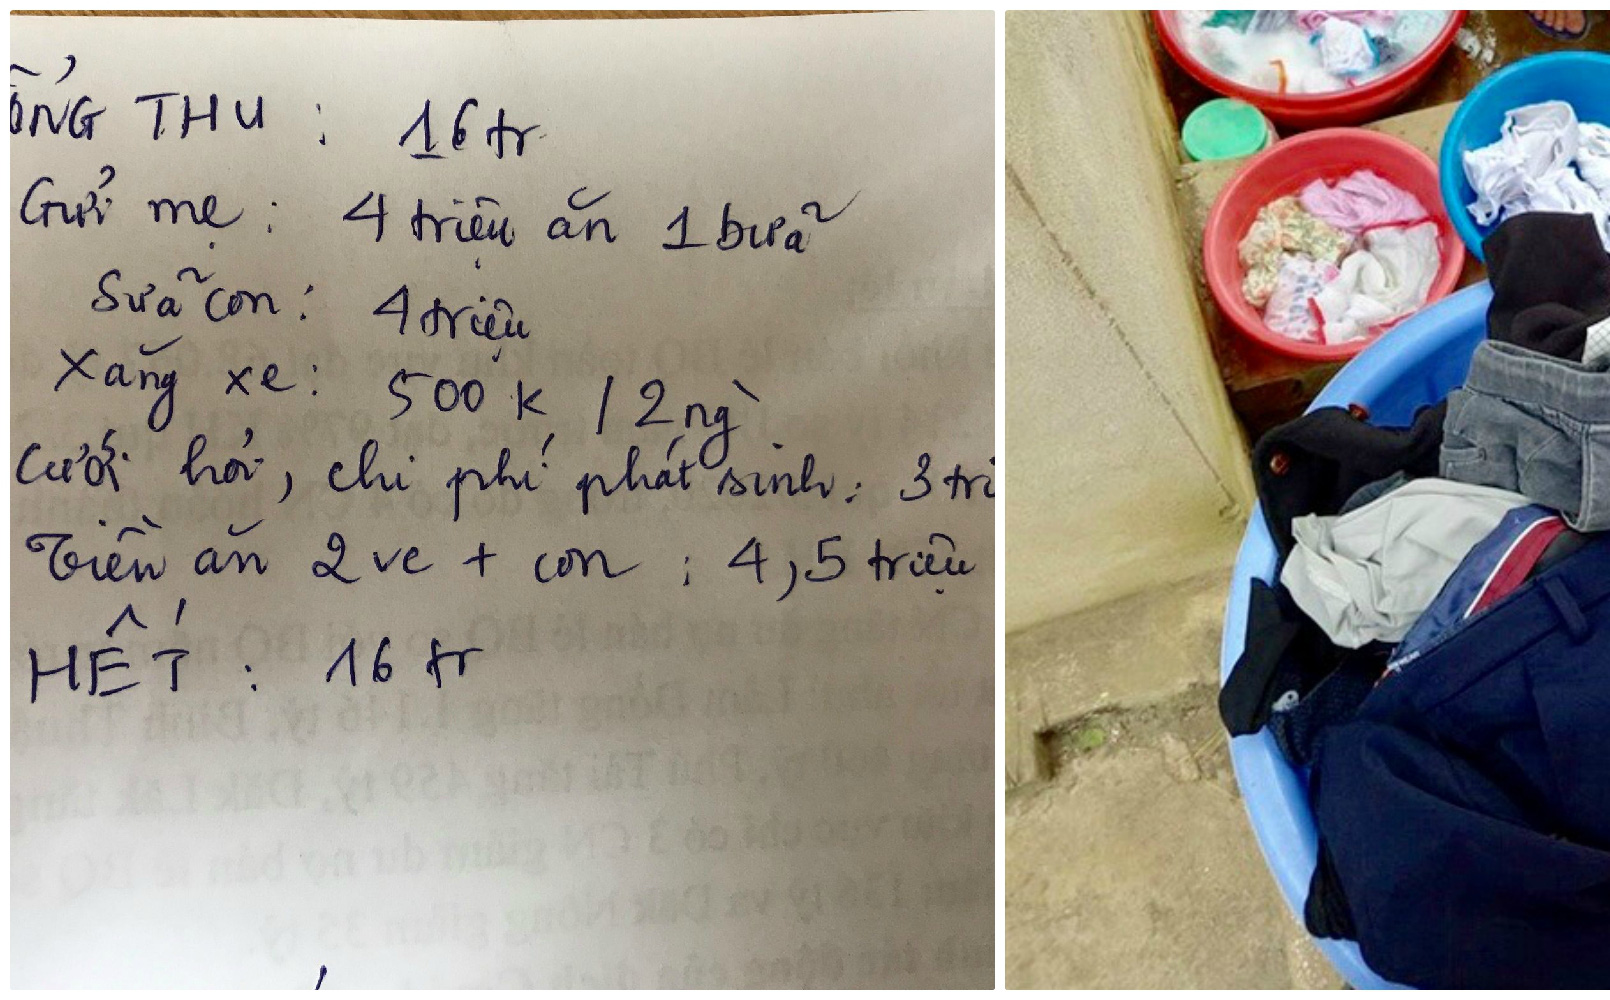 ỔNG THU : 16 tr
Gửi mẹ : 4 triệu ăn 1 bữa
Sữa con : 4 triệu
Xăng xe : 500 k / 2 ng
Cưới hỏi, chi phí phát sinh : 3 tri
Tiền ăn 2 vc + con : 4,5 triệu
HẾT : 16 tr